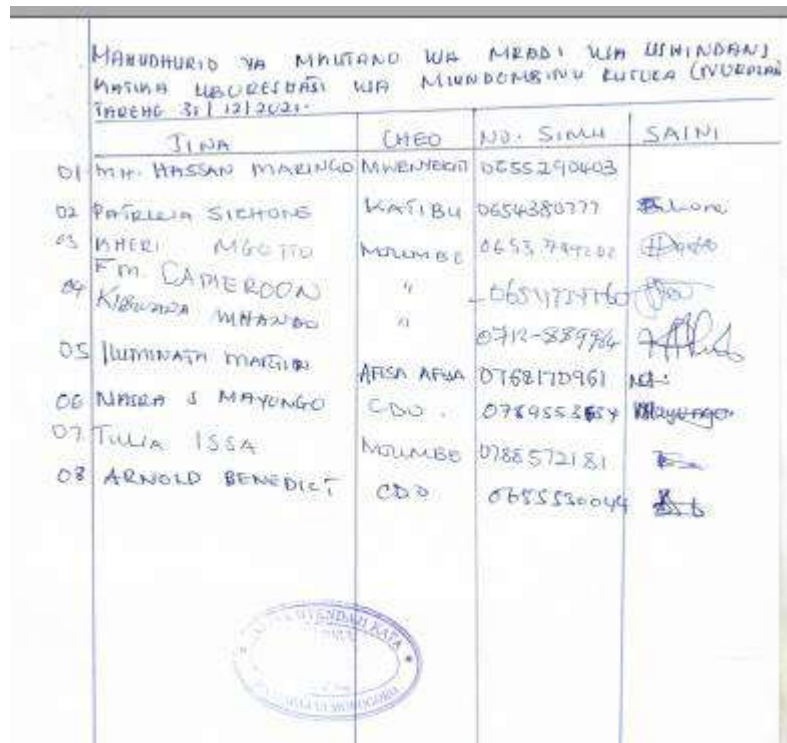 MAHUDHURIO YA MKUTANO WA MRADI WA USHINDANI
KATIKA UBORESHAJI WA MIUNDOMBINU KUTOKA
TAREHE 31/12/2021.
JINA CHEO NO. SIMU SAINI
01 MH. HASSAN MARINGO MWENYEKITI 0655290403
02 PATRICIA SICHONE KATIBU 0654380777
03 KHERI MGOTTO MJUMBE
FM. CAMEROON "
04 KIBWANA MHANDO " 0712-889964
05 ILUMINATA AFISA AFYA 0768170961
06 NASRA S MAYUNGO CDO. Mayungo
07 TULIA ISSA MJUMBE 0788572181
08 ARNOLD BENEDICT CDO 0655530044
KATA
MOROGORO